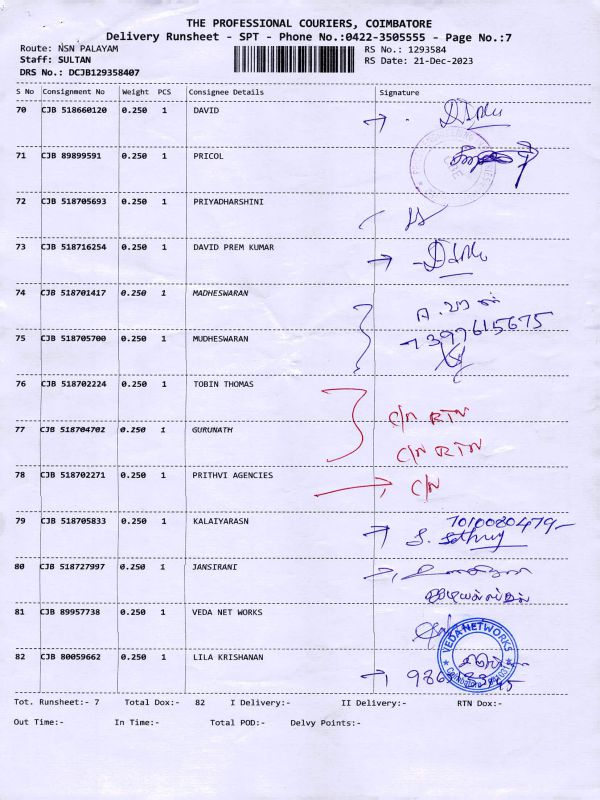 THE PROFESSIONAL COURIERS, COIMBATORE
Delivery Runsheet - SPT - Phone No.:0422-3505555 - Page No.:7
Route: NSN PALAYAM RS No.: 1293584
Staff: SULTAN RS Date: 21-Dec-2023
DRS No.: DCJB129358407
S No Consignment No Weight PCS Consignee Details Signature
70 CJB 518660120 0.250 1 DAVID
71 CJB 89899591 0.250 1 PRICOL
72 CJB 518705693 0.250 1 PRIYADHARSHINI
73 CJB 518716254 0.250 1 DAVID PREM KUMAR
74 CJB 518701417 0.250 1 MADHESWARAN
75 CJB 518705700 0.250 1 MUDHESWARAN
7397615675
76 CJB 518702224 0.250 1 TOBIN THOMAS
C/N RTN
77 CJB 518704702 0.250 1 GURUNATH
C/N RTN
78 CJB 518702271 0.250 1 PRITHVI AGENCIES
C/N
79 CJB 518705833 0.250 1 KALAIYARASN
80 CJB 518727997 0.250 1 JANSIRANI
81 CJB 89957738 0.250 1 VEDA NET WORKS
VEDA NETWORKS
82 CJB 80059662 0.250 1 LILA KRISHANAN
Tot. Runsheet:- 7 Total Dox:- 82 I Delivery:- II Delivery:- RTN Dox:-
Out Time:- In Time:- Total POD:- Delvy Points:-